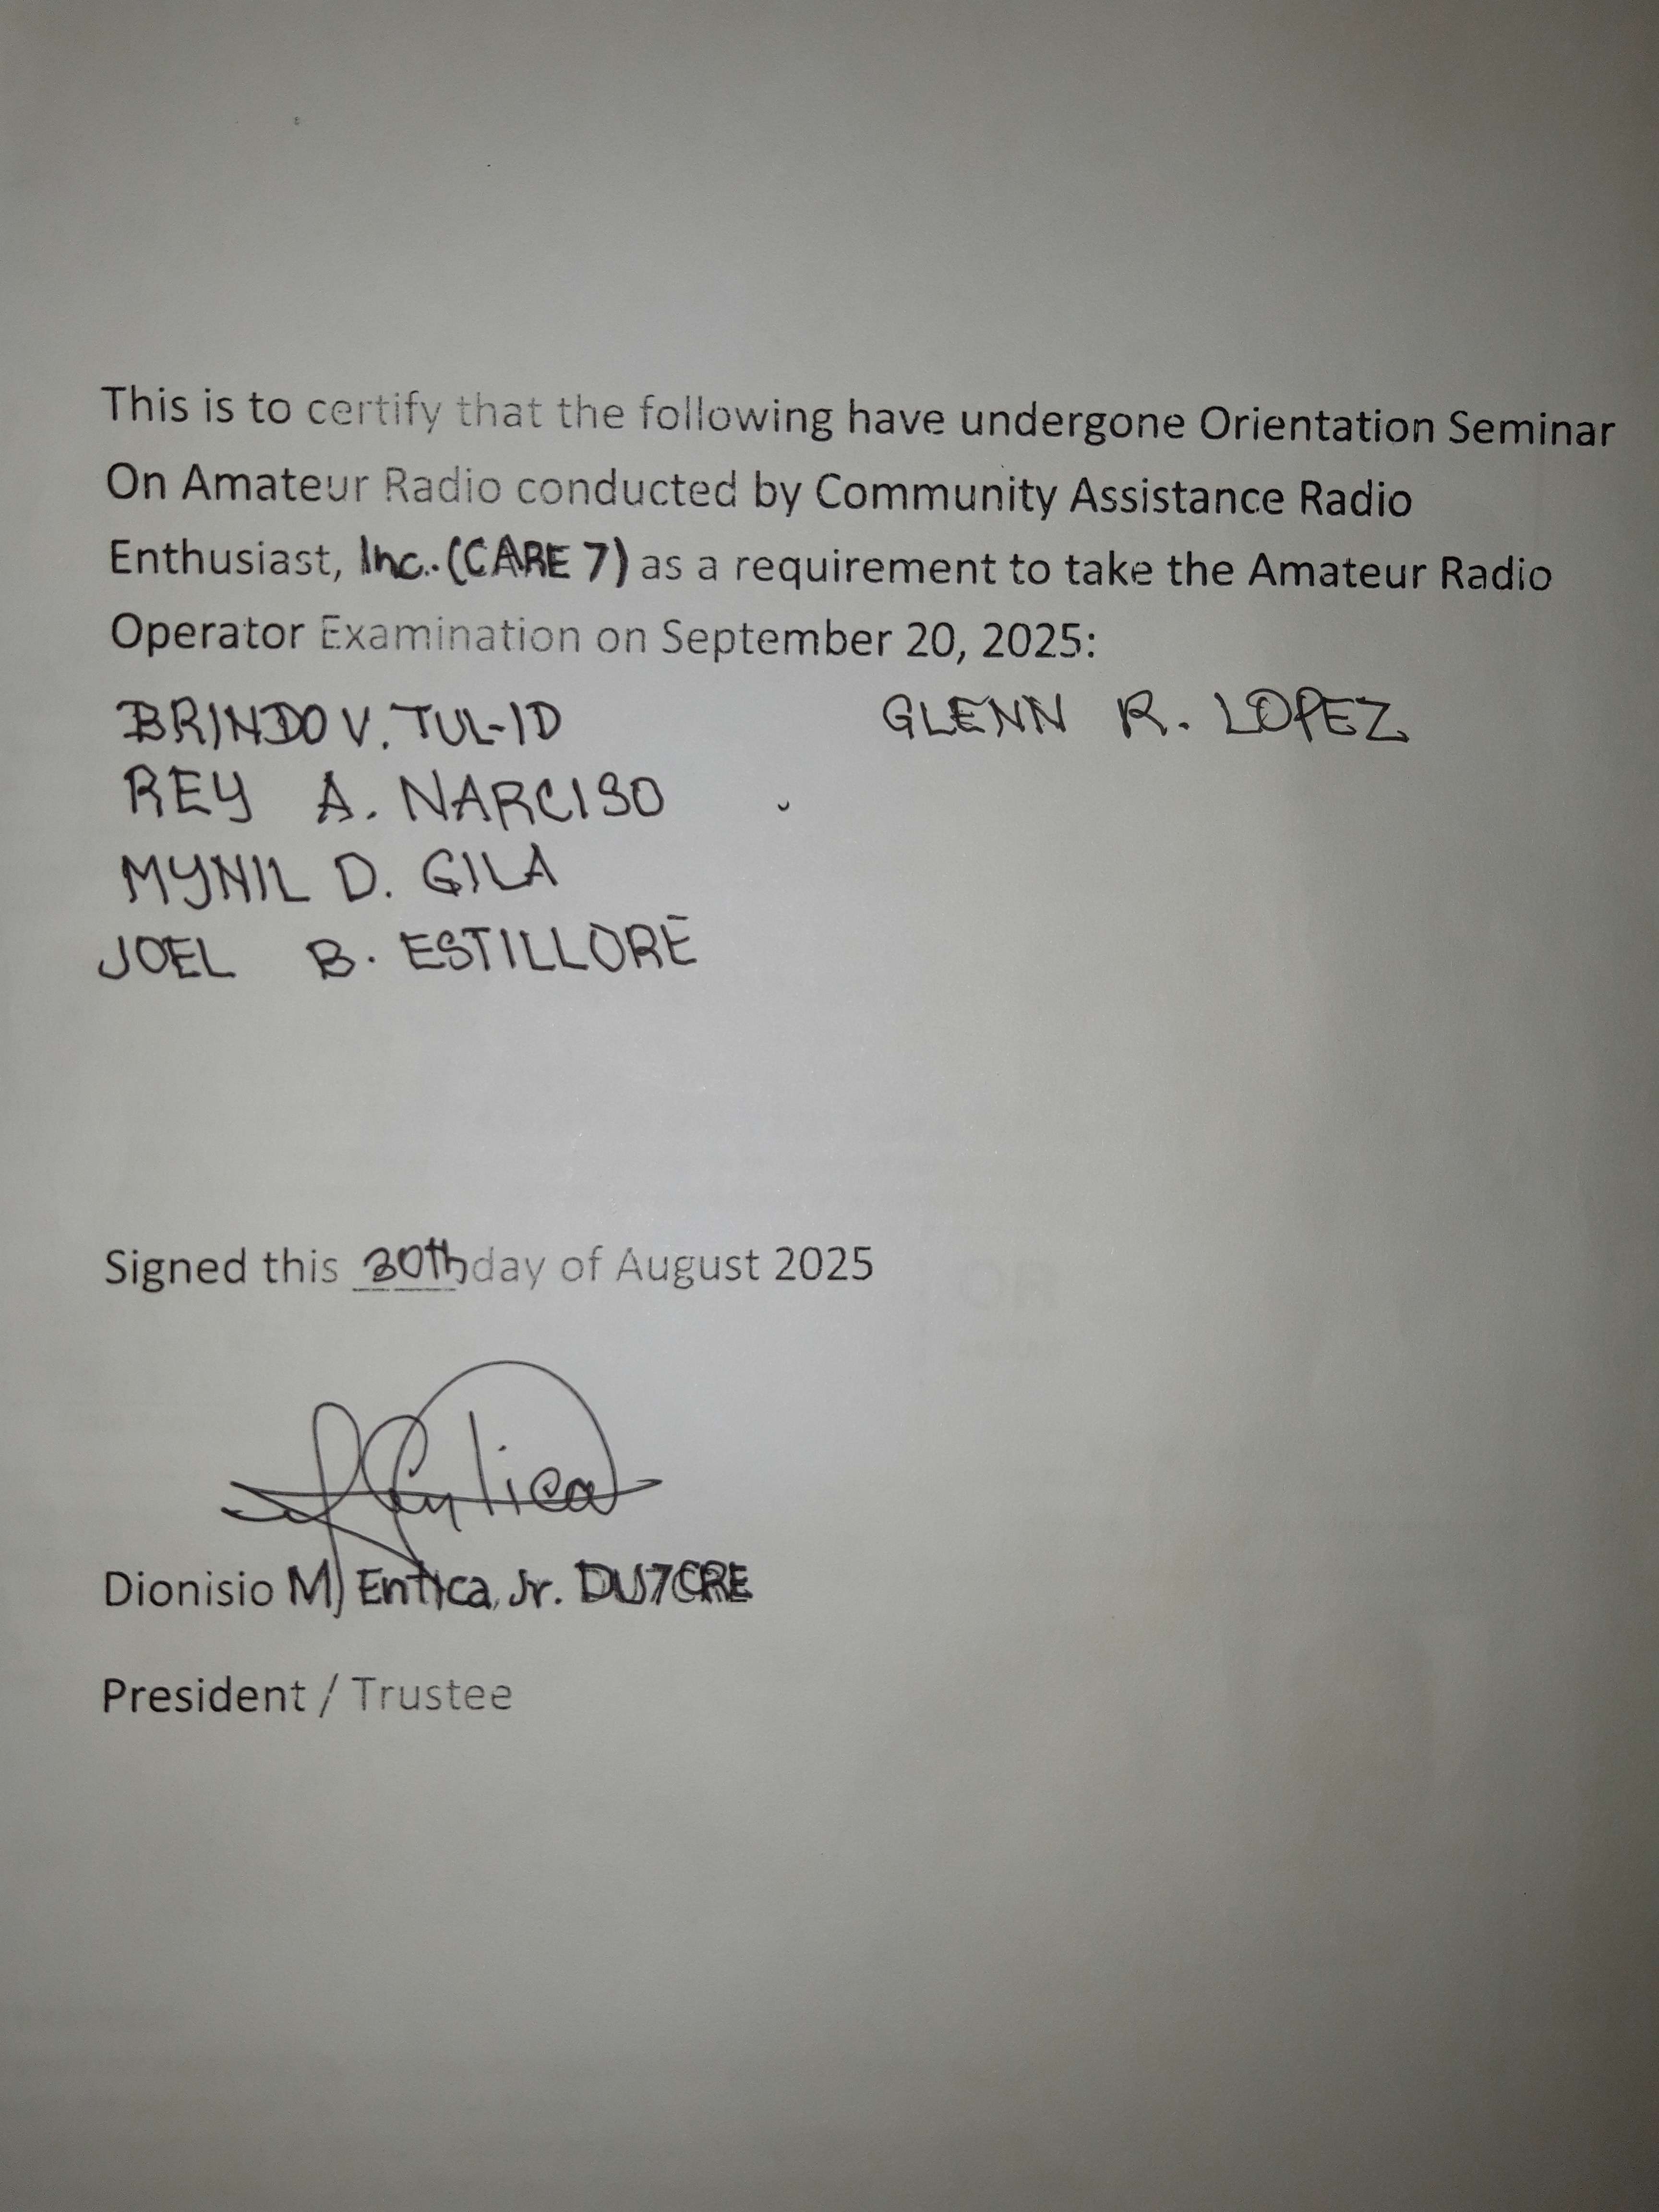 This is to certify that the following have undergone Orientation Seminar
On Amateur Radio conducted by Community Assistance Radio
Enthusiast, Inc. (CARE 7) as a requirement to take the Amateur Radio
Operator Examination on September 20, 2025:
BRINDO V. TUL-ID GLENN R. LOPEZ
REY A. NARCISO
MYNIL D. GILA
JOEL B. ESTILLORE
Signed this 30th day of August 2025
Dionisio M Entica, Jr. DU7CRE
President / Trustee